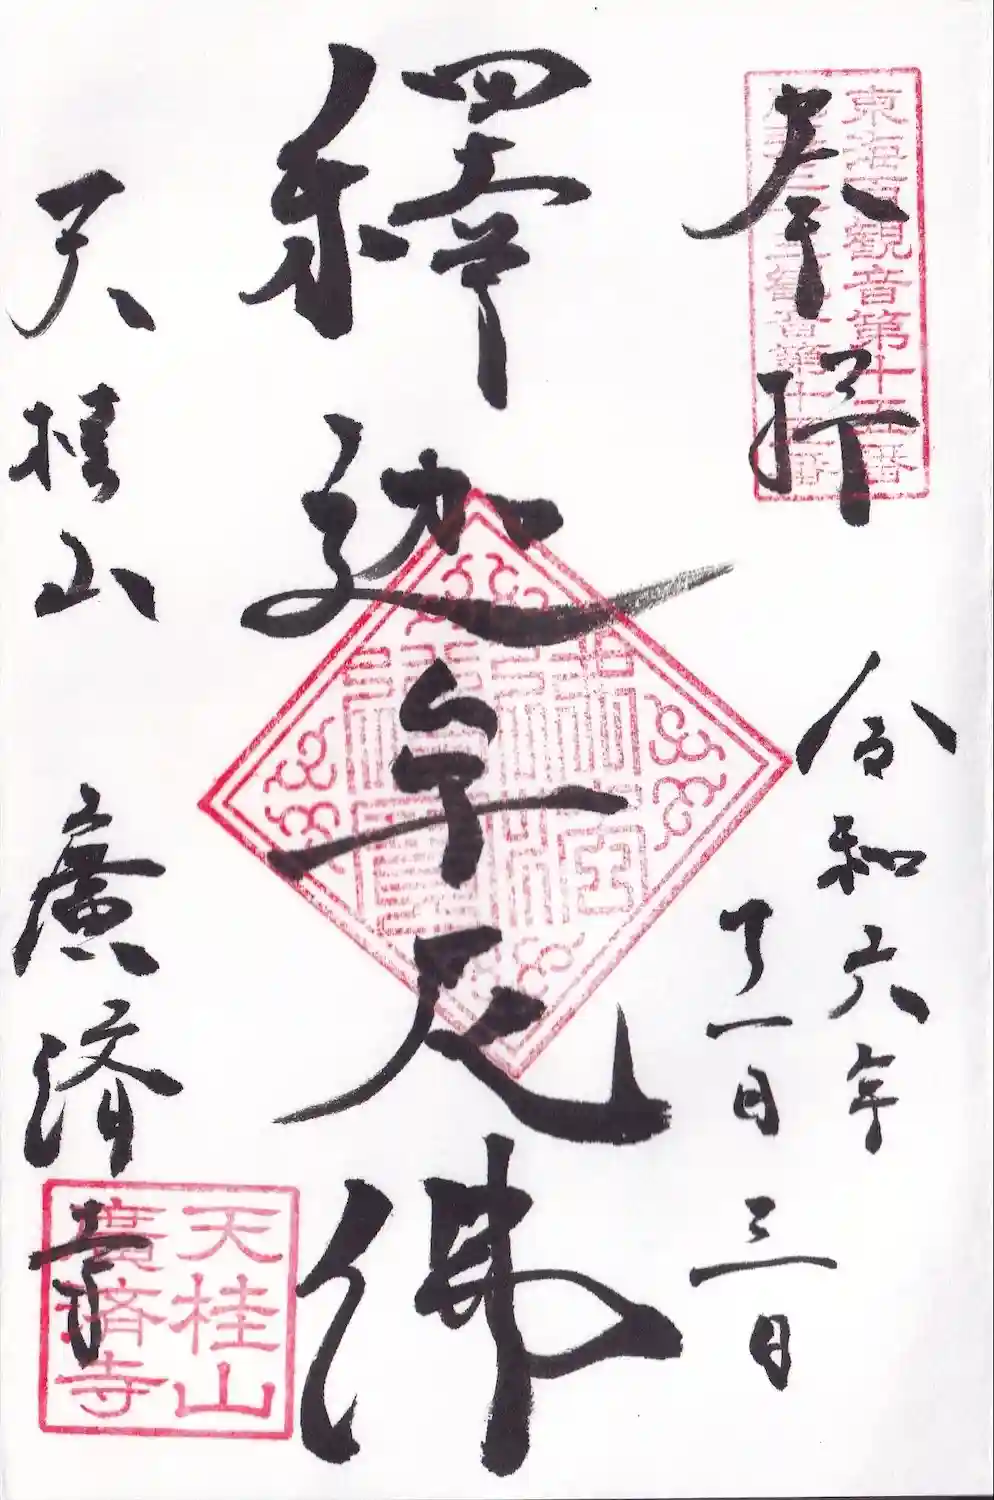 東海百観音第十五番
三十三観音第十五番
奉拝
令和六年
十一月
三日
釋迦牟尼佛
天桂山
廣済寺
天桂山
廣済寺